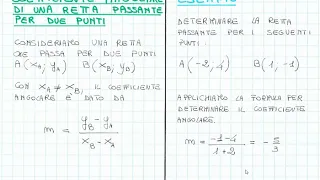 COEFFICIENTE ANGOLARE
DI UNA RETTA PASSANTE
PER DUE PUNTI
CONSIDERIAMO UNA RETTA
CHE PASSA PER DUE PUNTI
A (x_A, y_A) B (x_B, y_B)
CON x_A ≠ x_B, IL COEFFICIENTE
ANGOLARE È DATO DA
m = (y_B - y_A) / (x_B - x_A)
ESEMPIO
DETERMINARE LA RETTA
PASSANTE PER I SEGUENTI
PUNTI:
A (-2, 4) B (1, -1)
APPLICHIAMO LA FORMULA PER
DETERMINARE IL COEFFICIENTE
ANGOLARE.
m = (-1-4) / (1+2) = - 5/3